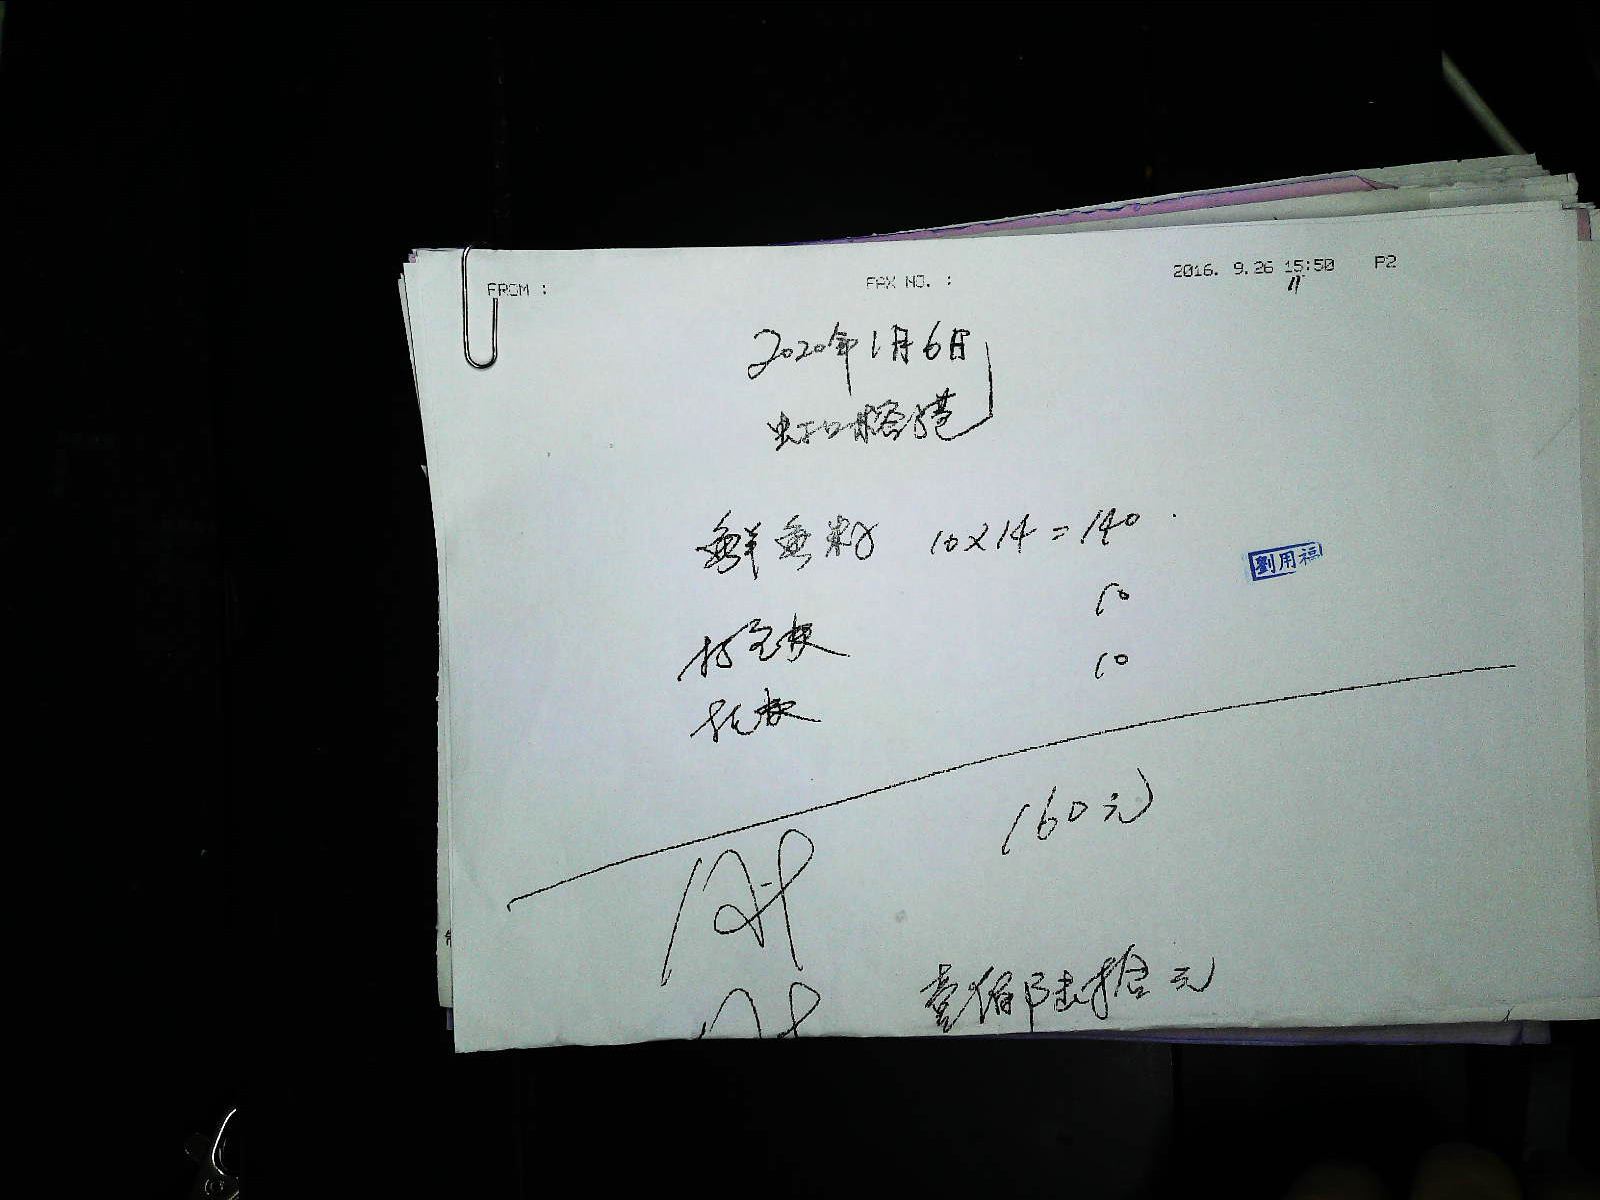 FROM : FAX NO. : 2016. 9.26 15:50 P2
11
2020年1月6日
虹口
鮮魚粉 10×14=140
劉用福
10
打包費
10
160元
壹佰陆拾元